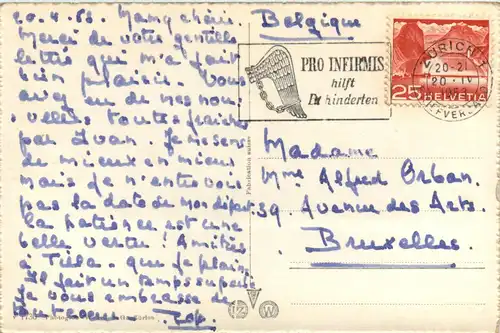 20.4.53. Mamy chérie.
Merci de votre gentille
lettre qui m'a fait
bien plaisir. Vous
avez eu de mes nou-
velles toutes fraîches
par Ivan. Je me sens
de mieux en mieux
mais je n'entrevois
pas la date de mon départ
la patience est une
belle vertu! Amitiés
à que je plains,
Il fait un temps superbe
Je vous embrasse de
tout cœur.
Belgique
PRO INFIRMIS
hilft
hinderten
ZÜRICH
20-21
20. IV
BRIEFVERSAND
25 HELVETIA
Fabrication suisse
Madame
Mme Alfred Orban.
39 Avenue des Arts.
Bruxelles.
IZ W